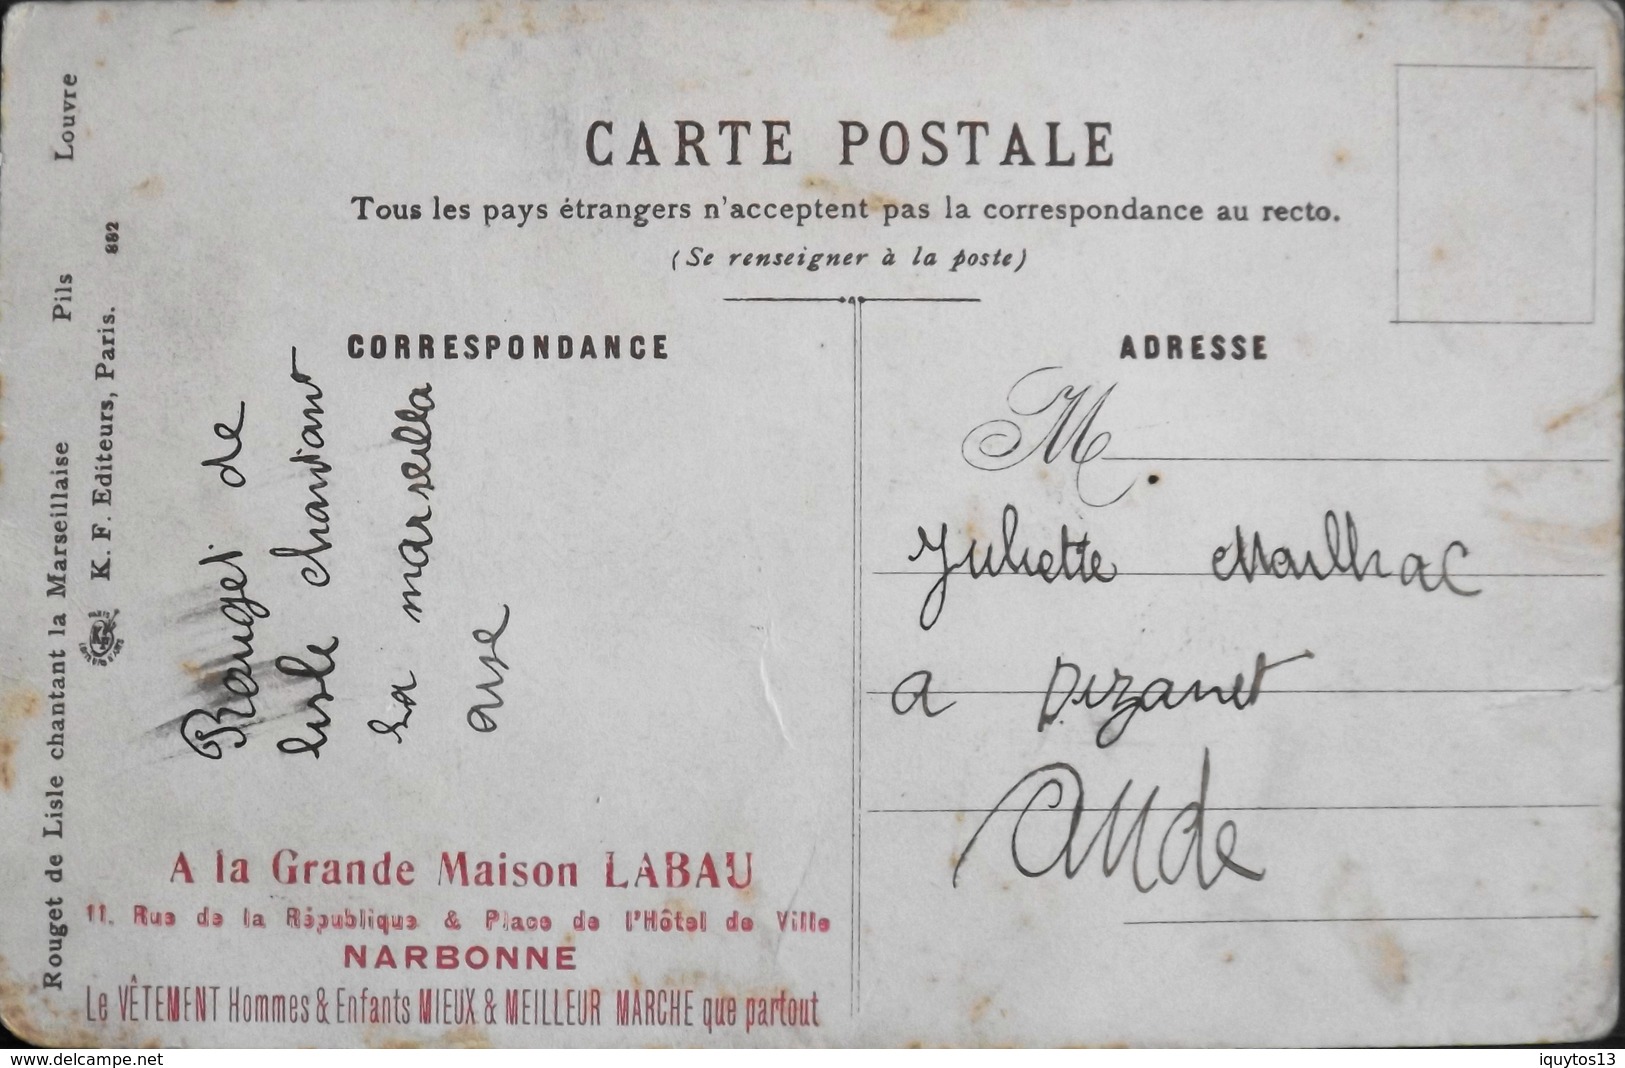 CARTE POSTALE
Tous les pays étrangers n'acceptent pas la correspondance au recto.
(Se renseigner à la poste)
CORRESPONDANCE
ADRESSE
Rouget de Lisle chantant la Marseillaise Pils Louvre
K. F. Editeurs, Paris. 882
Rouget de
lisle chantant
La marseilla
ase
M
Juliette Mailhac
a Bizanet
Aude
A la Grande Maison LABAU
11. Rue de la République & Place de l'Hôtel de Ville
NARBONNE
Le VÊTEMENT Hommes & Enfants MIEUX & MEILLEUR MARCHE que partout
https://www.delcampe.net
iquytos13